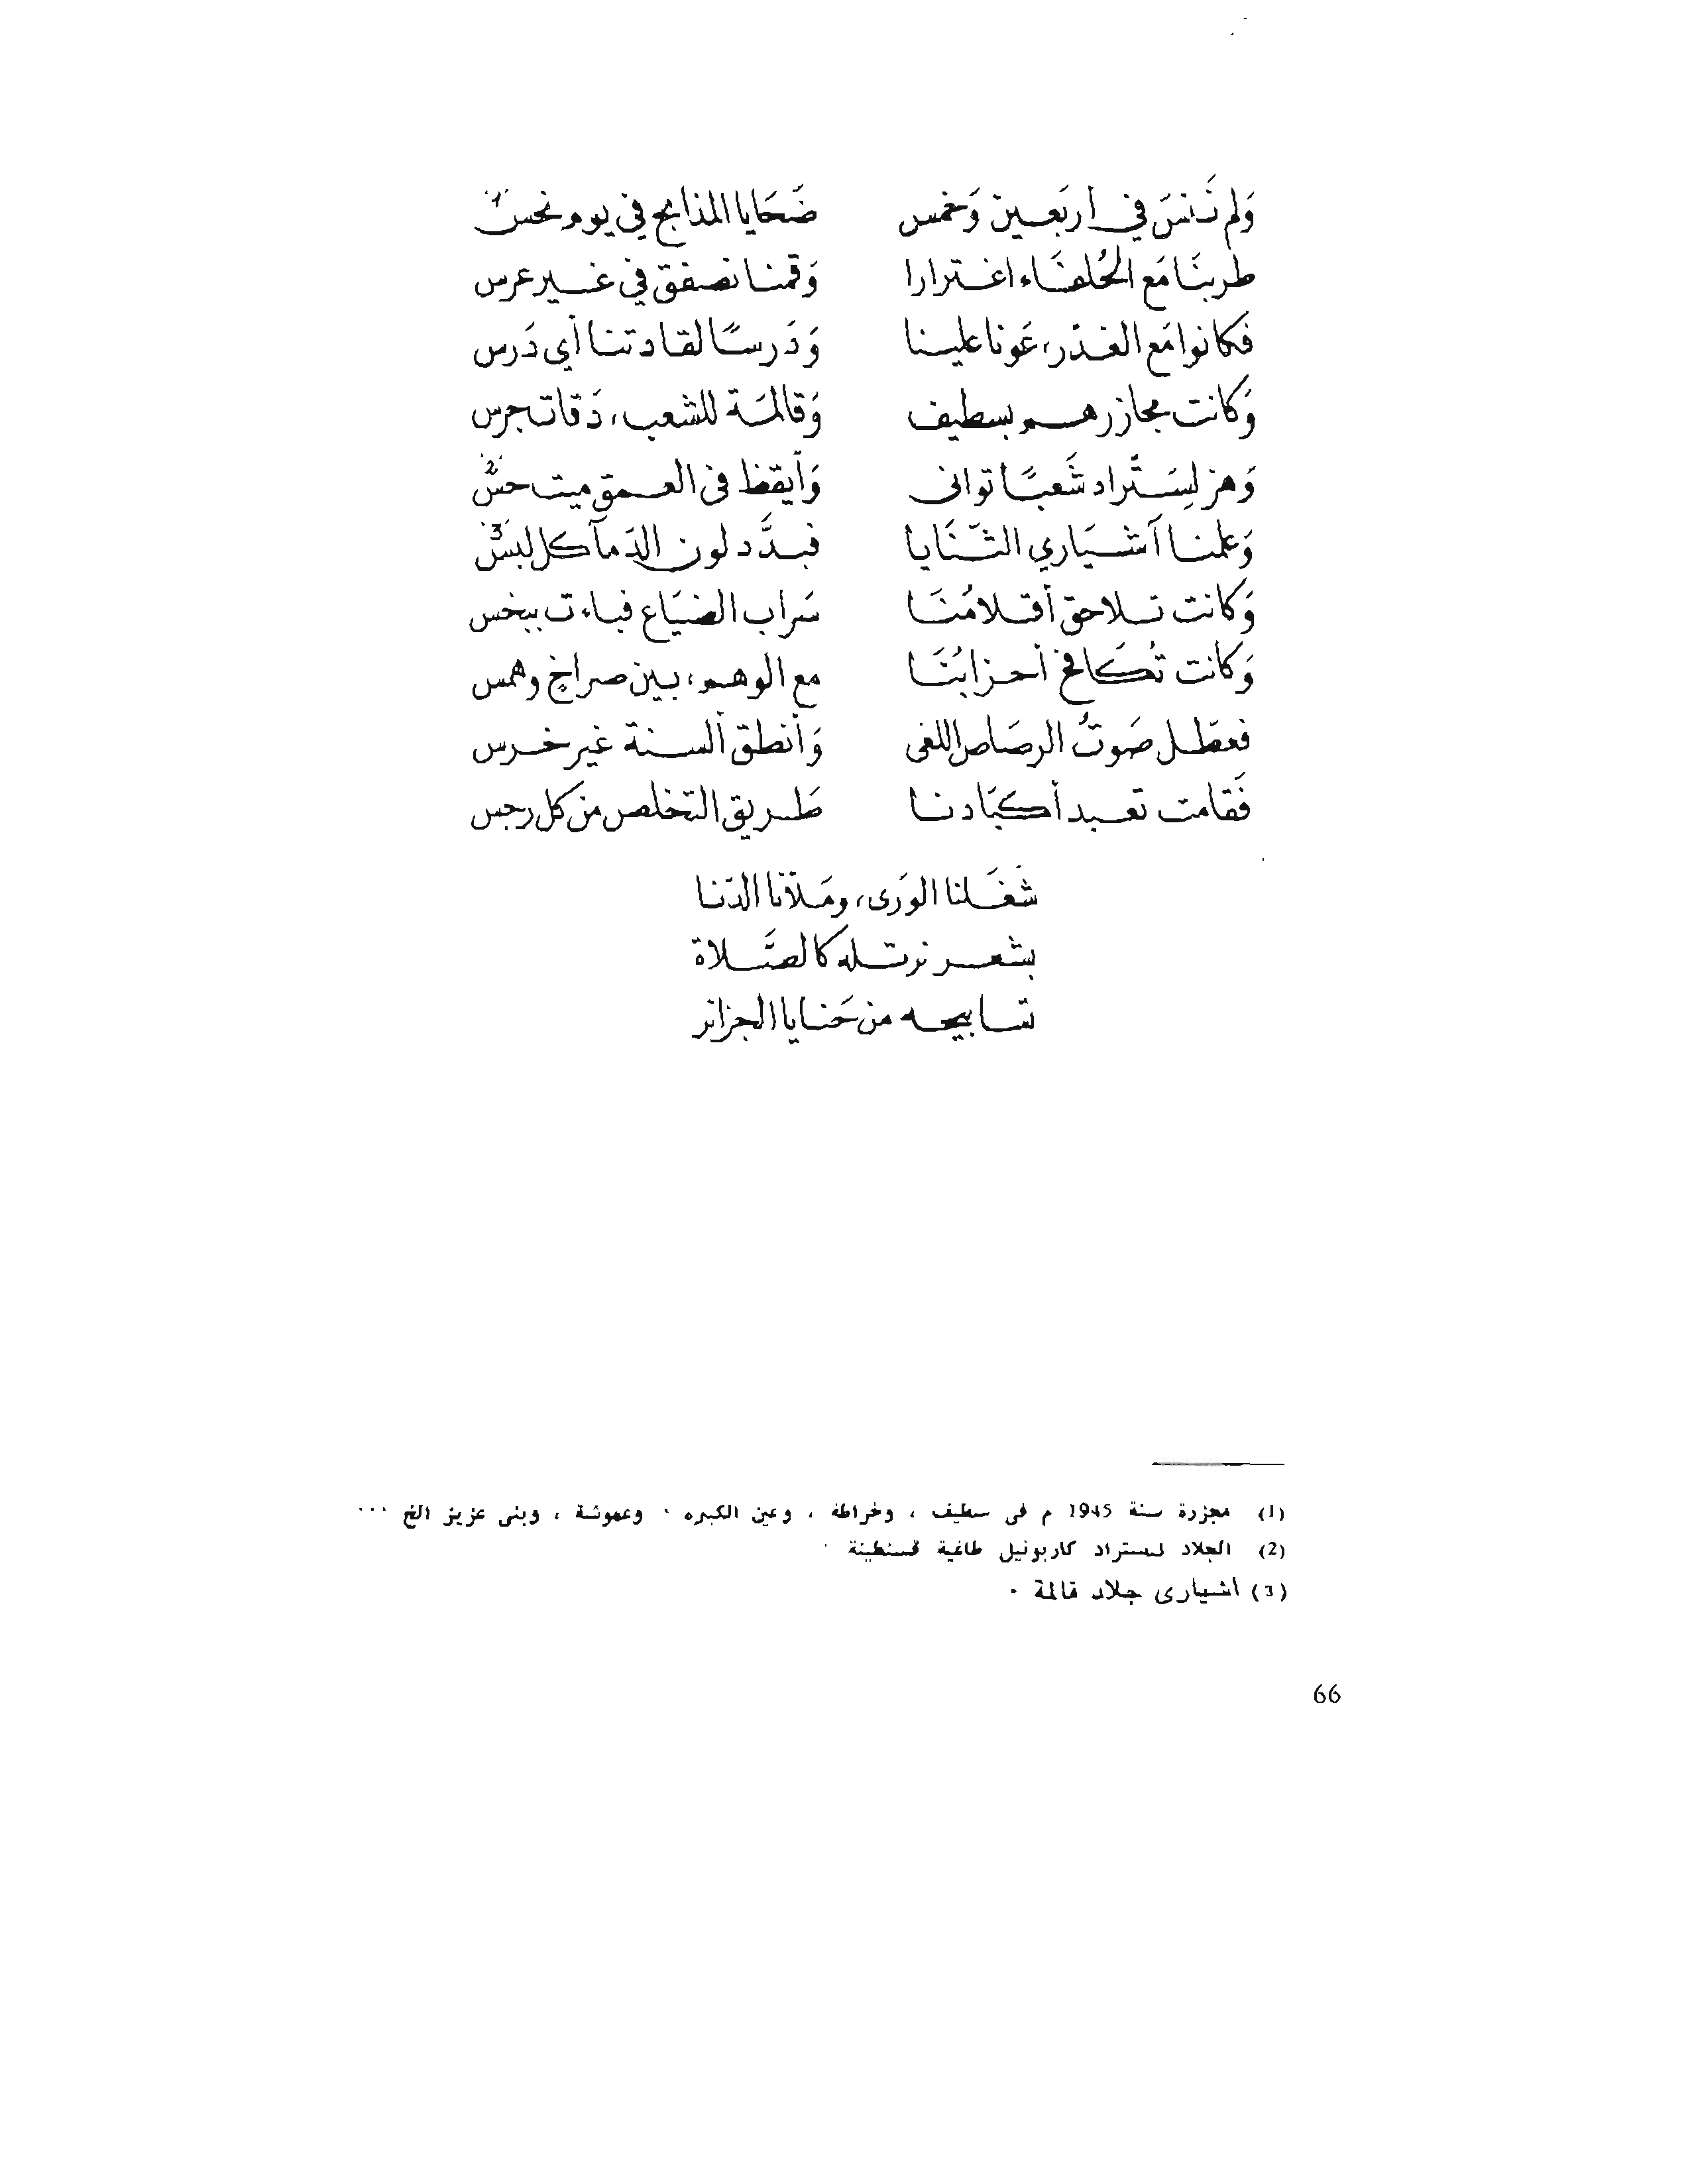 وَلم نَنسَ في أربَعـين وَخمس ضَحَايا المذابح في يوم نحس (1)
طربنَا مَع الحُلفَاء اغـترارا وَقمنـا نصفق في غـير عرس
فكانوا مَع الغـدْر، عَونا علينـا وَدَرسًا لقادتنـا أي دَرس
وَكانت مجازرهـم بسطيف وَقالمَـة للشعب، دَقات جرس
وَهز لِسَـتْراد شَعبًـا توانى وَأيقظ فى العـمق ميت حسّ (2)
وَعلمنـا آشـيَاري الثّـنَايا فبـدَّد لون الدّما كل لبس (3)
وَكانت تـلاحق أقـلامُنـَا سَراب الضيَاع فباءت ببخس
وَكانت تُكَـافح أحـزابُنَـا مع الوهـم، بـين صراخٍ وهمس
فعطّـل صَوتُ الرصَاص اللغى وَأنطق ألسـنة غير خـرس
فَقامت تعـبد أكبَادنـا طَـريق التخلص من كل رجس
شَغَـلنا الورَى، ومَلأنا الدّنـا
بشعـر نرتـله كالصَّـلاة
تسـابيحـه من حَنـايا الجزائر
(1) مجزرة سنة 1945 م فى سطيف ، وخراطة ، وعين الكبيره ٠ وعموشة ، وبنى عزيز الخ ...
(2) الجلاد لستراد كاربونيل طاغية قسنطينة ٠
(3) اشيارى جلاد قالمة ٠
66